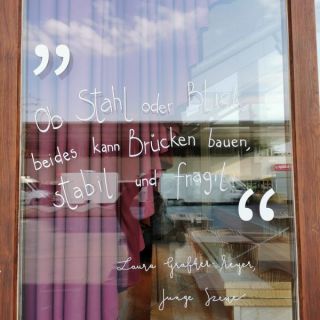 „
Ob Stahl oder Blick,
beides kann Brücken bauen,
stabil und fragil.
“
Laura
Junge Szene